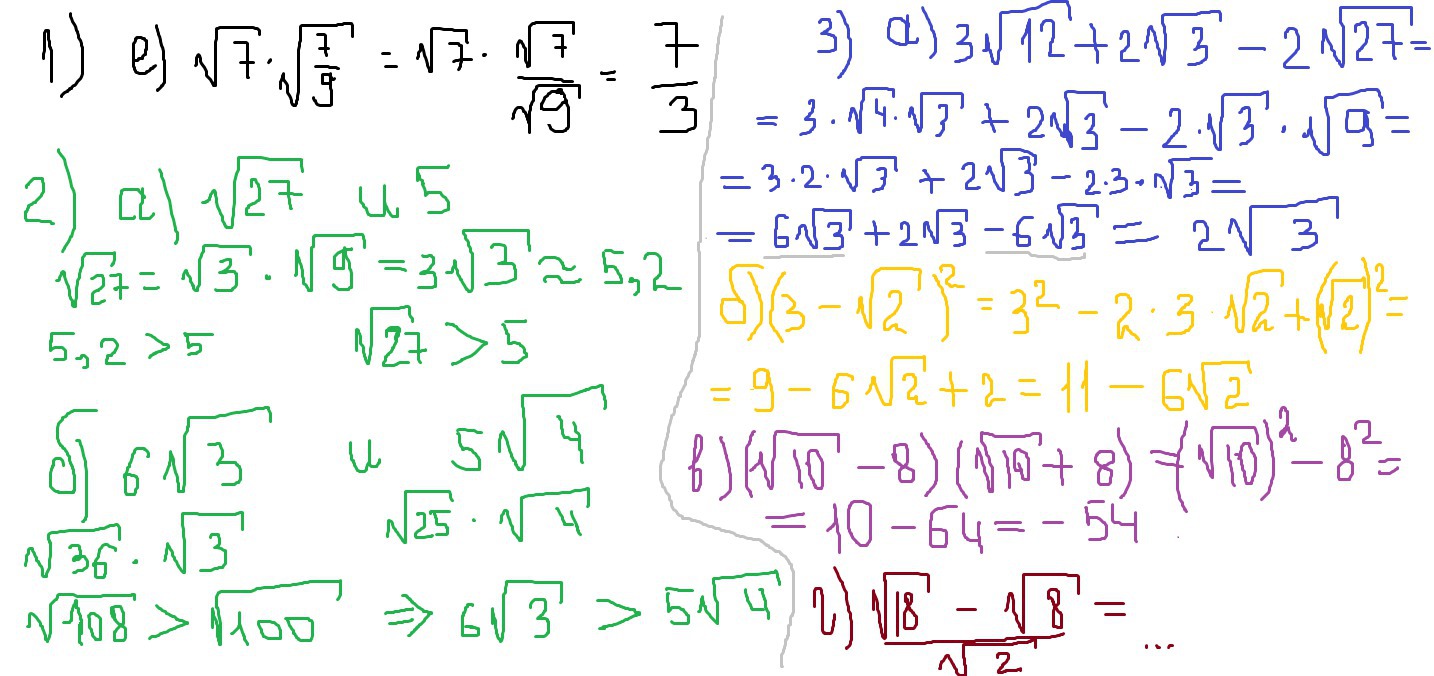 1) е) √7 · √(7/9) = √7 · √7/√9 = 7/3
2) а) √27 и 5
√27 = √3 · √9 = 3√3 ≈ 5,2
5,2 > 5 √27 > 5
б) 6√3 и 5√4
√36 · √3 √25 · √4
√108 > √100 ⇒ 6√3 > 5√4
3) а) 3√12 + 2√3 − 2√27 =
= 3 · √4 · √3 + 2√3 − 2 · √3 · √9 =
= 3 · 2 · √3 + 2√3 − 2 · 3 · √3 =
= 6√3 + 2√3 − 6√3 = 2√3
б) (3 − √2)² = 3² − 2 · 3 · √2 + (√2)² =
= 9 − 6√2 + 2 = 11 − 6√2
в) (√10 − 8)(√10 + 8) = (√10)² − 8² =
= 10 − 64 = − 54
г) (√18 − √8)/√2 = ...